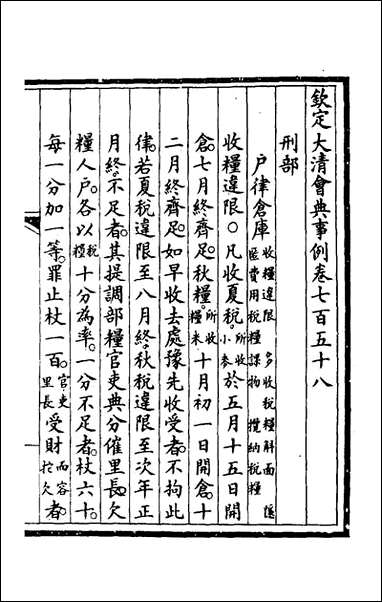 欽定大清會典事例卷七百五十八
刑部
戶律倉庫 收糧違限 多收稅糧斛面 隱匿費用稅糧課物 攬納稅糧
收糧違限○凡收夏稅。所收小麥於五月十五日開
倉。七月終齊足。秋糧。所收糧米十月初一日開倉。十
二月終齊足。如早收去處豫先收受者。不拘此
律。若夏稅違限至八月終。秋稅違限至次年正
月終。不足者。其提調部糧官吏典分催里長。欠
糧人戶。各以稅糧十分為率。一分不足者。杖六十。
每一分加一等。罪止杖一百。官吏里長受財而容拖欠者。